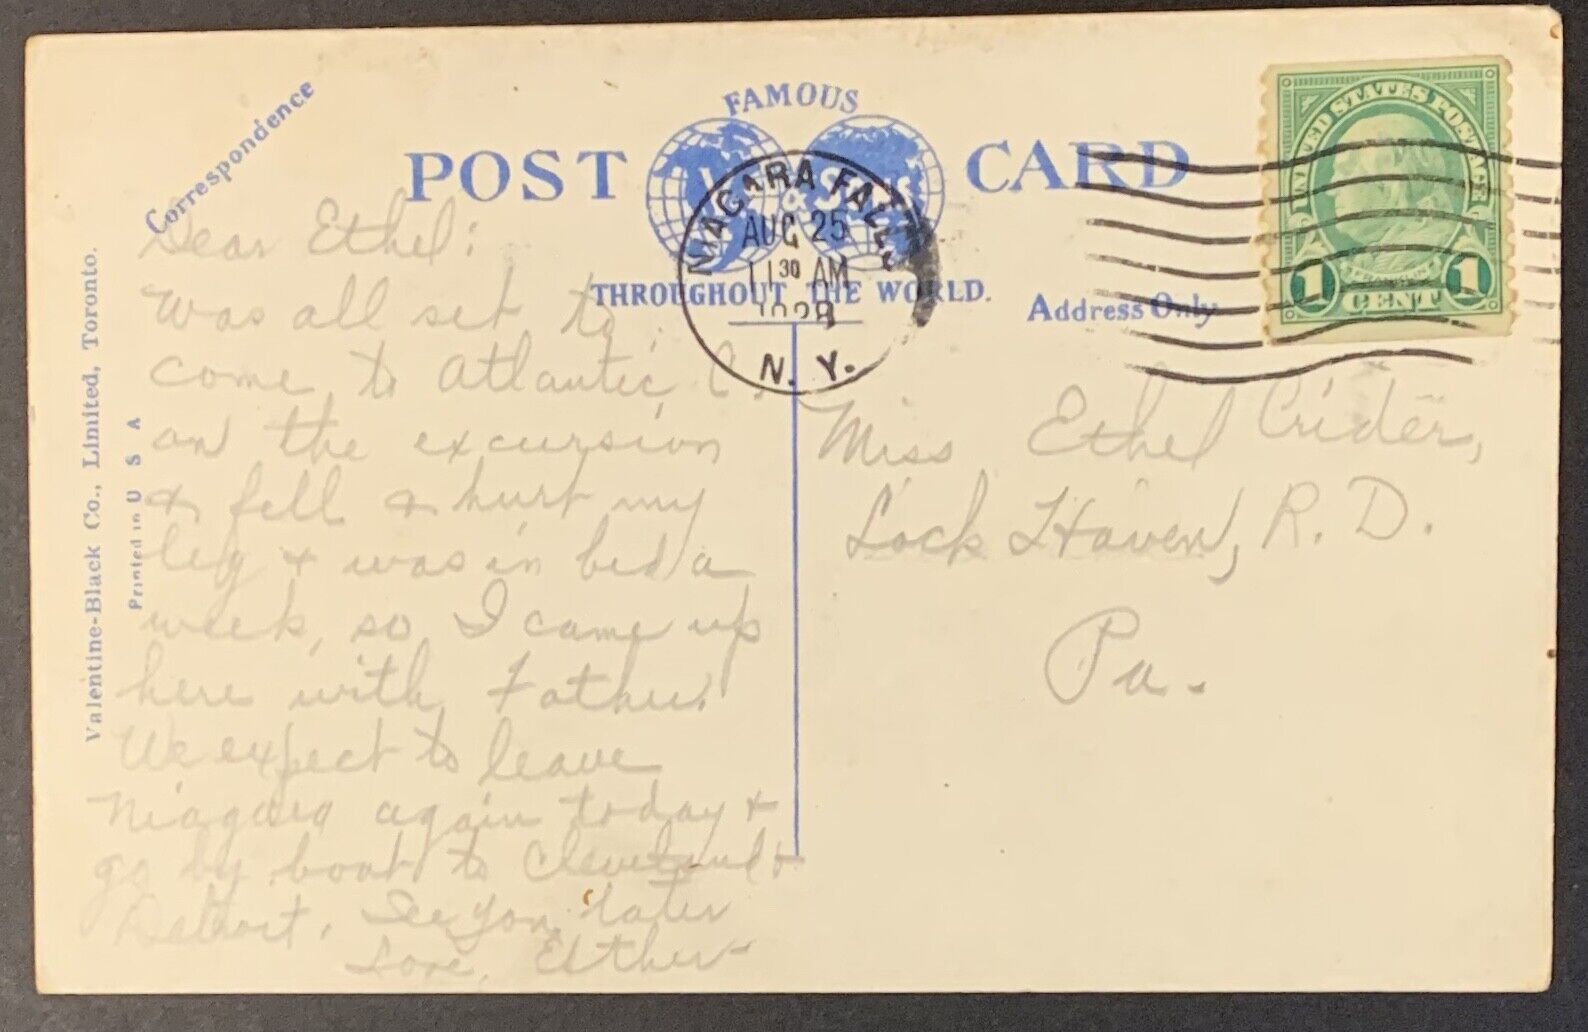 Correspondence
FAMOUS
POST CARD
THROUGHOUT THE WORLD.
Address Only
NIAGARA FALLS
AUG 25
11 30 AM
1928
N. Y.
UNITED STATES POSTAGE
FRANKLIN
1 CENT 1
Valentine-Black Co., Limited, Toronto.
Printed in U S A
Dear Ethel:
Was all set to
come to Atlantic C.
on the excursion
& fell & hurt my
leg & was in bed a
week, so I came up
here with Father.
We expect to leave
Niagara again today &
go by boat to Cleveland &
Detroit. See you later
Love, Esther
Miss Ethel Crider,
Lock Haven, R. D.
Pa.